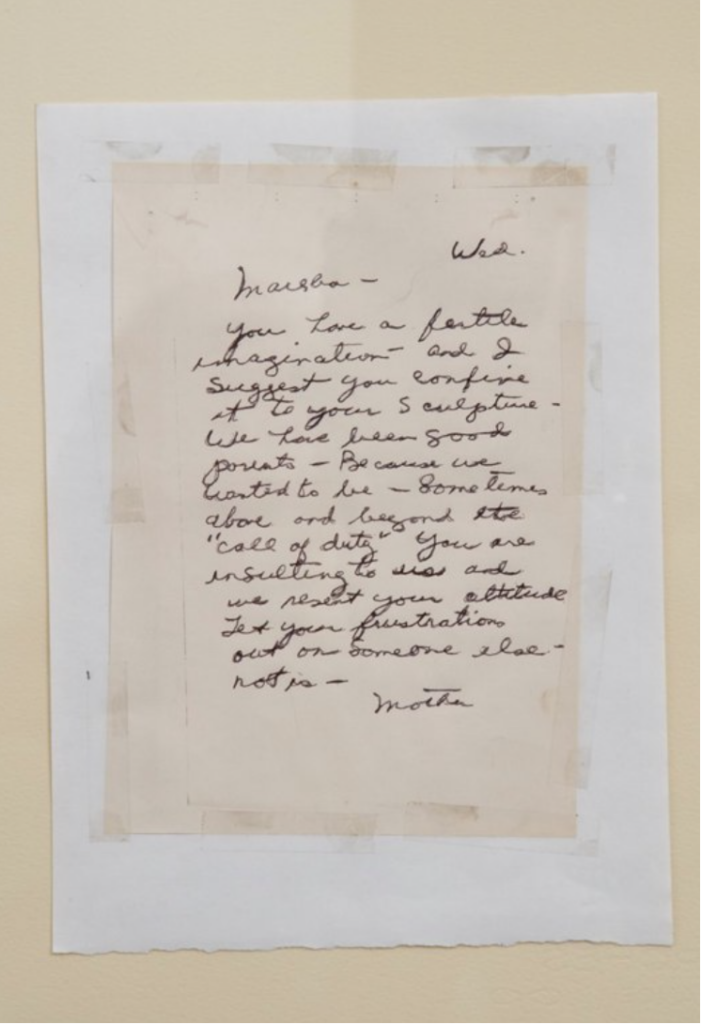 Wed.
Marsha –
You have a fertile
imagination – and I
suggest you confine
it to your sculpture –
We have been good
parents – Because we
wanted to be – Sometimes
above and beyond the
"call of duty" You are
insulting to us and
we resent your attitude
Let your frustrations
out on someone else –
not us –
Mother